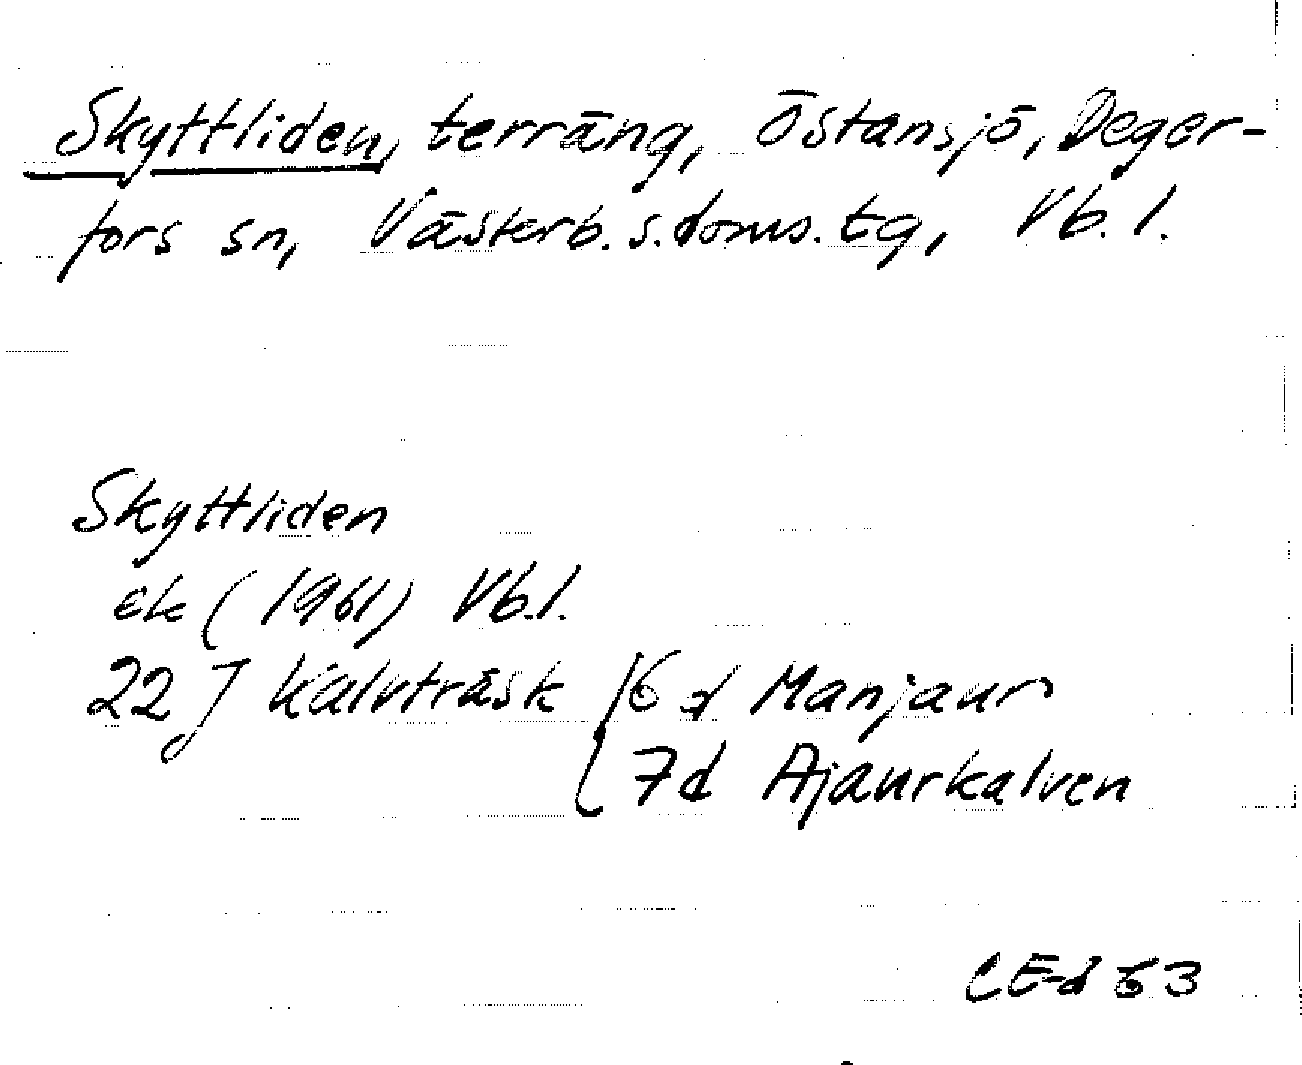 Skyttliden, terräng, Östansjö, Deger-
fors sn, Västerb. s. doms. tg, Vb. l.
Skyttliden
ek (1961) Vb. l.
22 J Kalvträsk { 6 d Manjaur
7d Ajaurkalven
CE-d 63